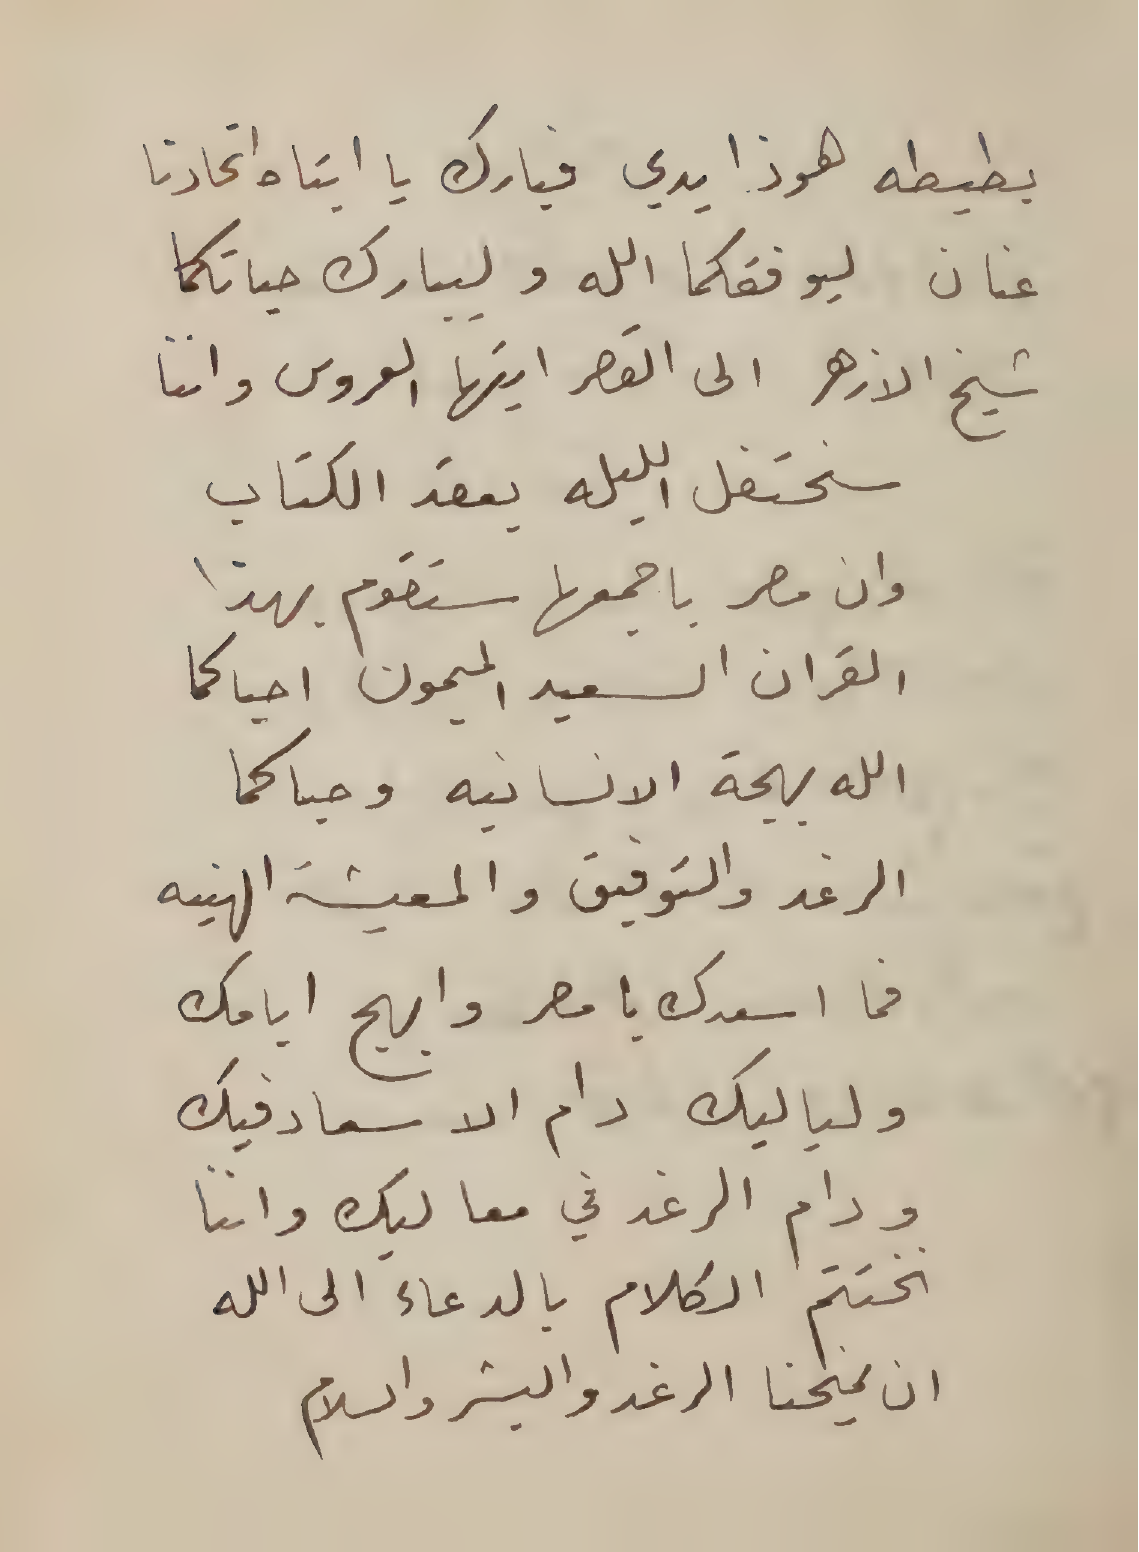 بطيطه هوذا يدي فبارك يا ابتاه اتحادنا
عنان ليوفقكما الله وليبارك حياتكما
شيخ الازهر الى القصر ايتها العروس واننا
سنحتفل الليله بعقد الكتاب
وان مصر باجمعها ستقوم بهذا
القران السعيد الميمون احياكما
الله بهجة الانسانيه وحباكما
الرغد والتوفيق والمعيشة الهنيه
فما اسعدك يا مصر وابهج ايامك
ولياليك دام الاسعاد فيك
ودام الرغد في معاليك واننا
نختتم الكلام بالدعاء الى الله
ان يمنحنا الرغد والبشر والسلام